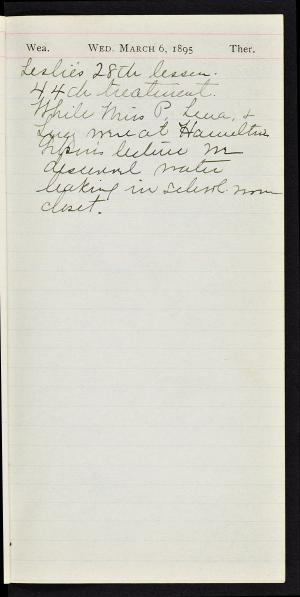 Wea. WED. MARCH 6, 1895 Ther.
Leslie's 28th lesson.
44th treatment.
While Miss P, Lena, &
were at Hamilton
lecture
discovered water
leaking in school room
closet.